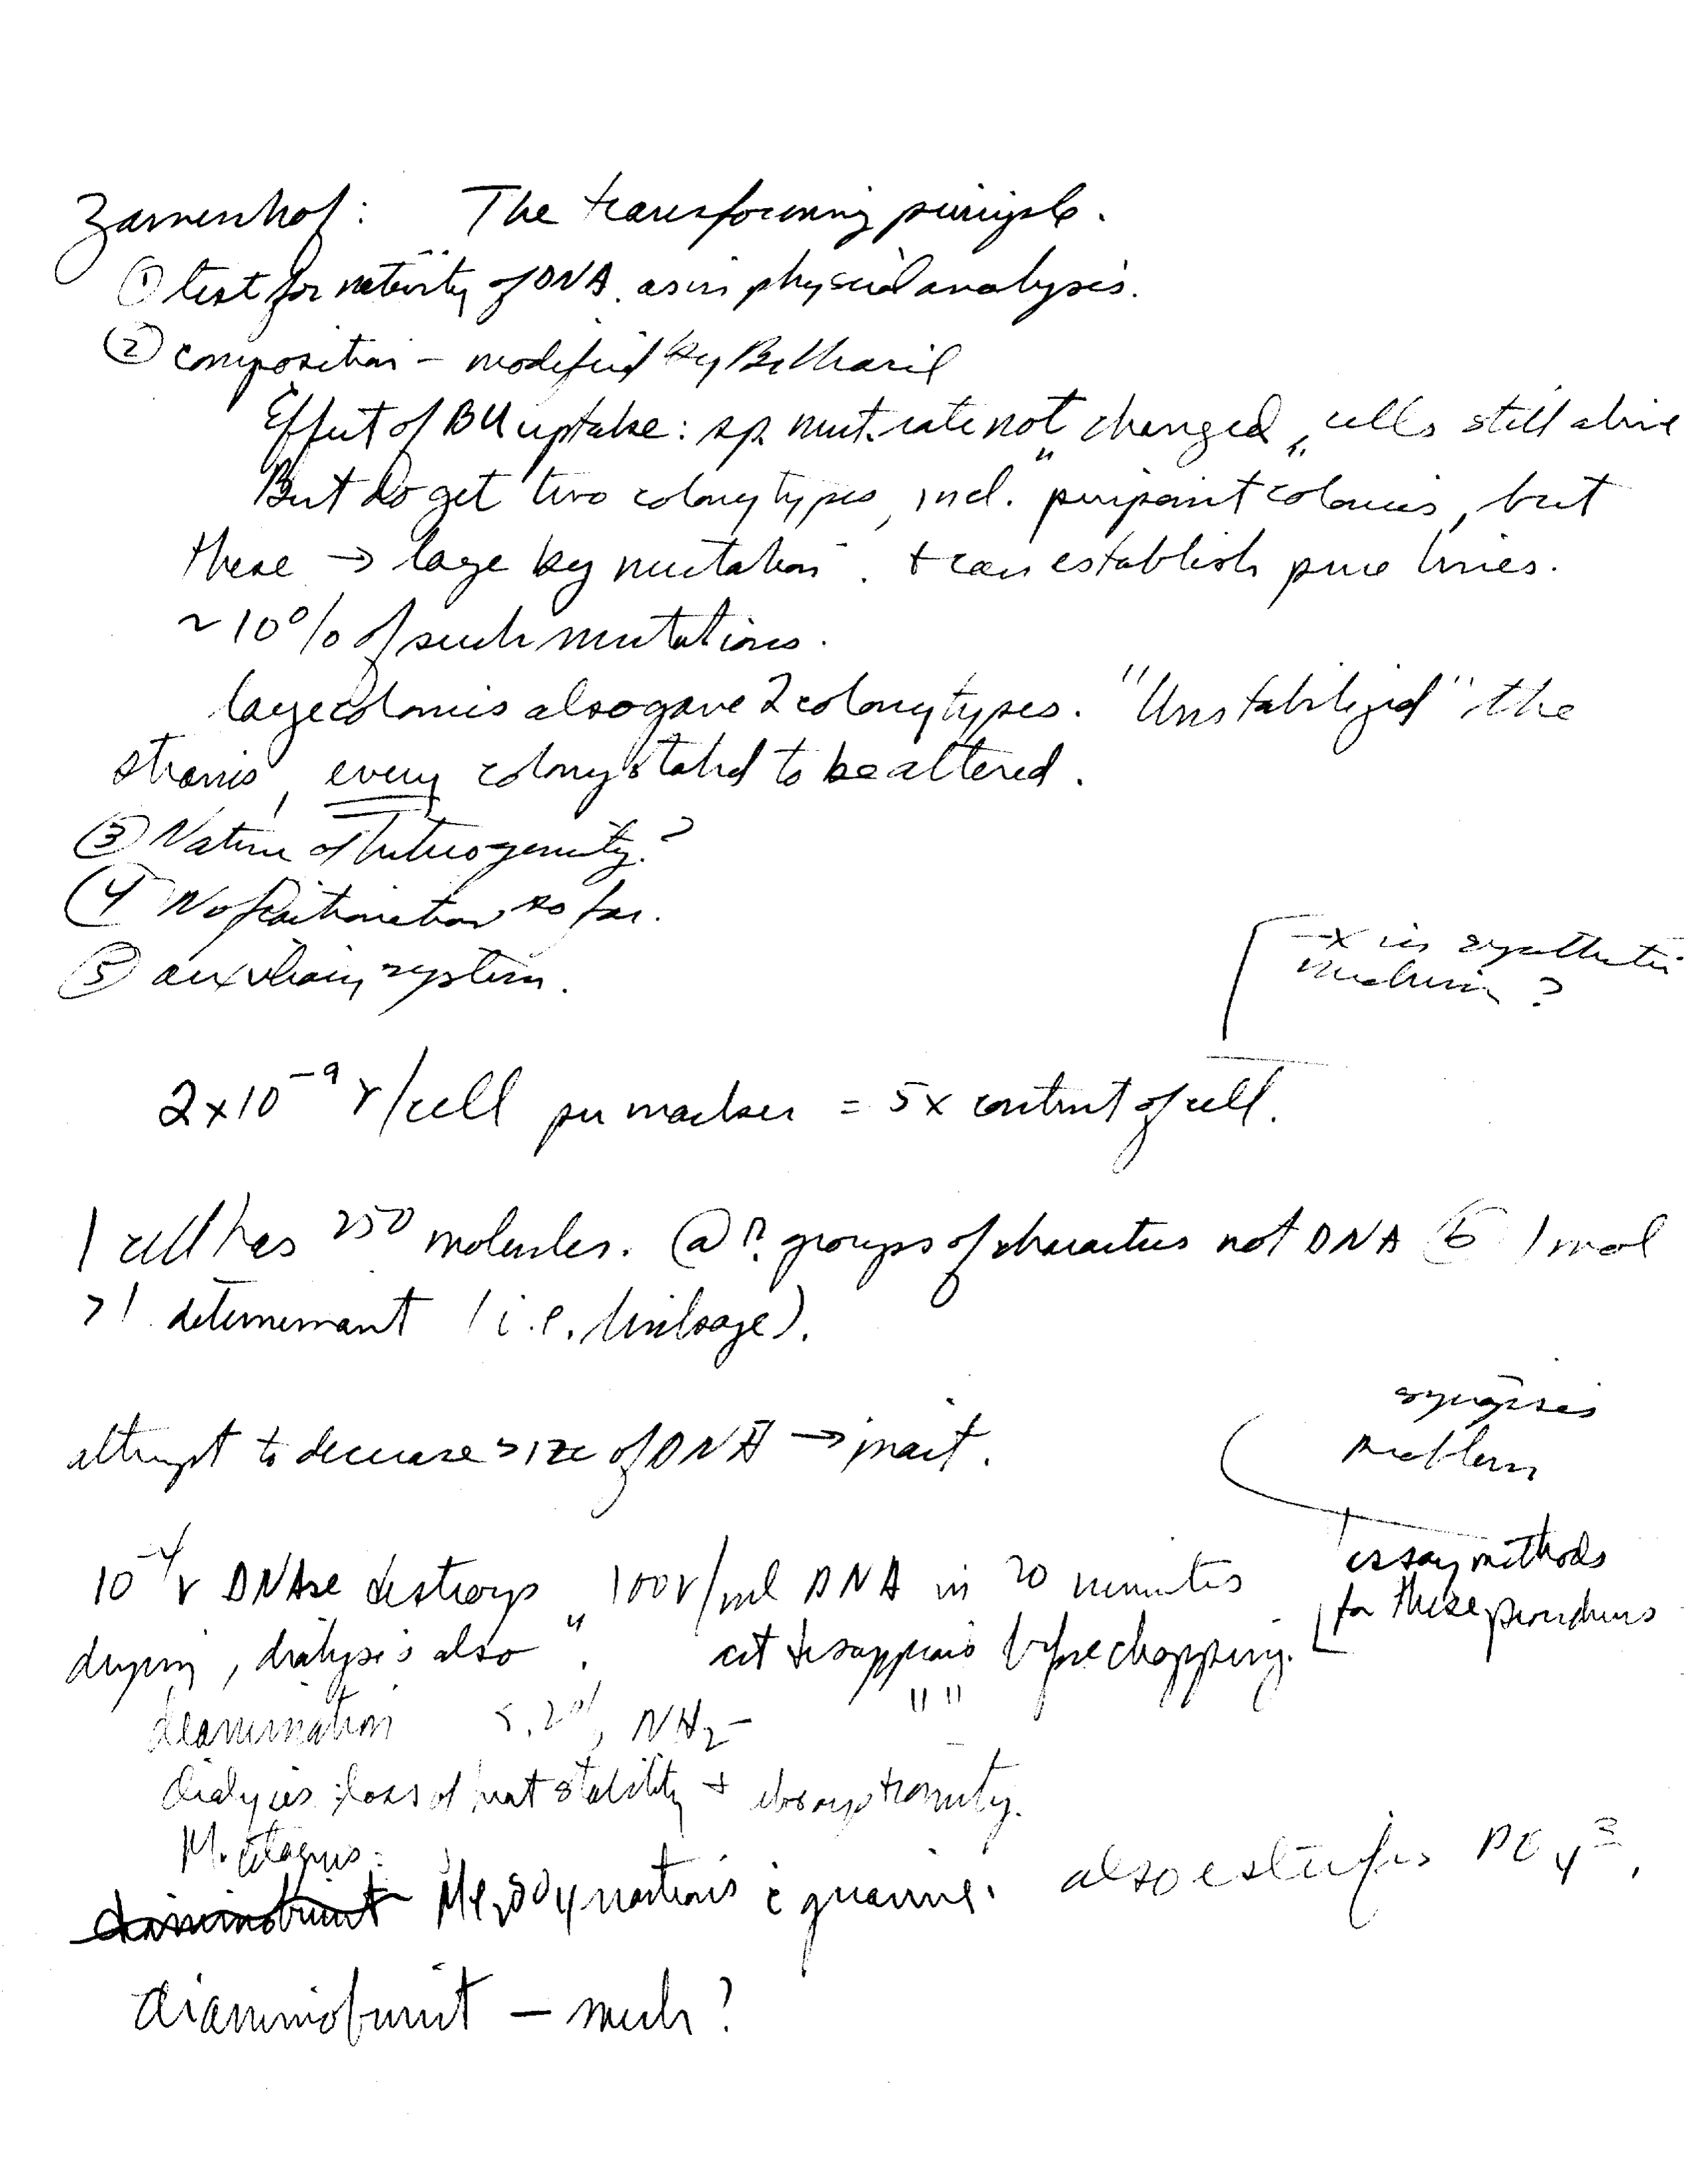 Zamenhof: The transforming principle.
① test for nativity of DNA. as in physical analysis.
② composition – modified by
Effect of BU uptake: sp. mut. rate not "changed", cells still alive
But do get two colony types, incl. "pinpoint colonies, but
these → large by mutation". + can establish pure lines.
~ 10% of such mutations.
large colonies also gave 2 colony types. "Unstabilized" the
strains, every colony stated to be altered.
③ Nature of heterogeneity?
④ No fractionation so far.
⑤ auxiliary system.
–x in synthetic
medium?
2 x 10⁻⁹ γ/cell per marker = 5x content of cell.
1 cell has 250 molecules. ⓐ ?. groups of characters not DNA ⓑ 1 mol
>1 determinant (i.e. linkage).
attempt to decrease size of DNA → inact.
synapsis
problem
10⁻⁴ γ DNAse destroys " 100γ/ml DNA in 20 minutes
assay methods
for these procedures
drying, dialysis also ". act disappears before chopping.
deamination NH₂– " "
dialysis: loss of heat stability +
Mutagens:
Me₂SO₄ reactions c guanine. also esterifies PO₄≡.
– much?